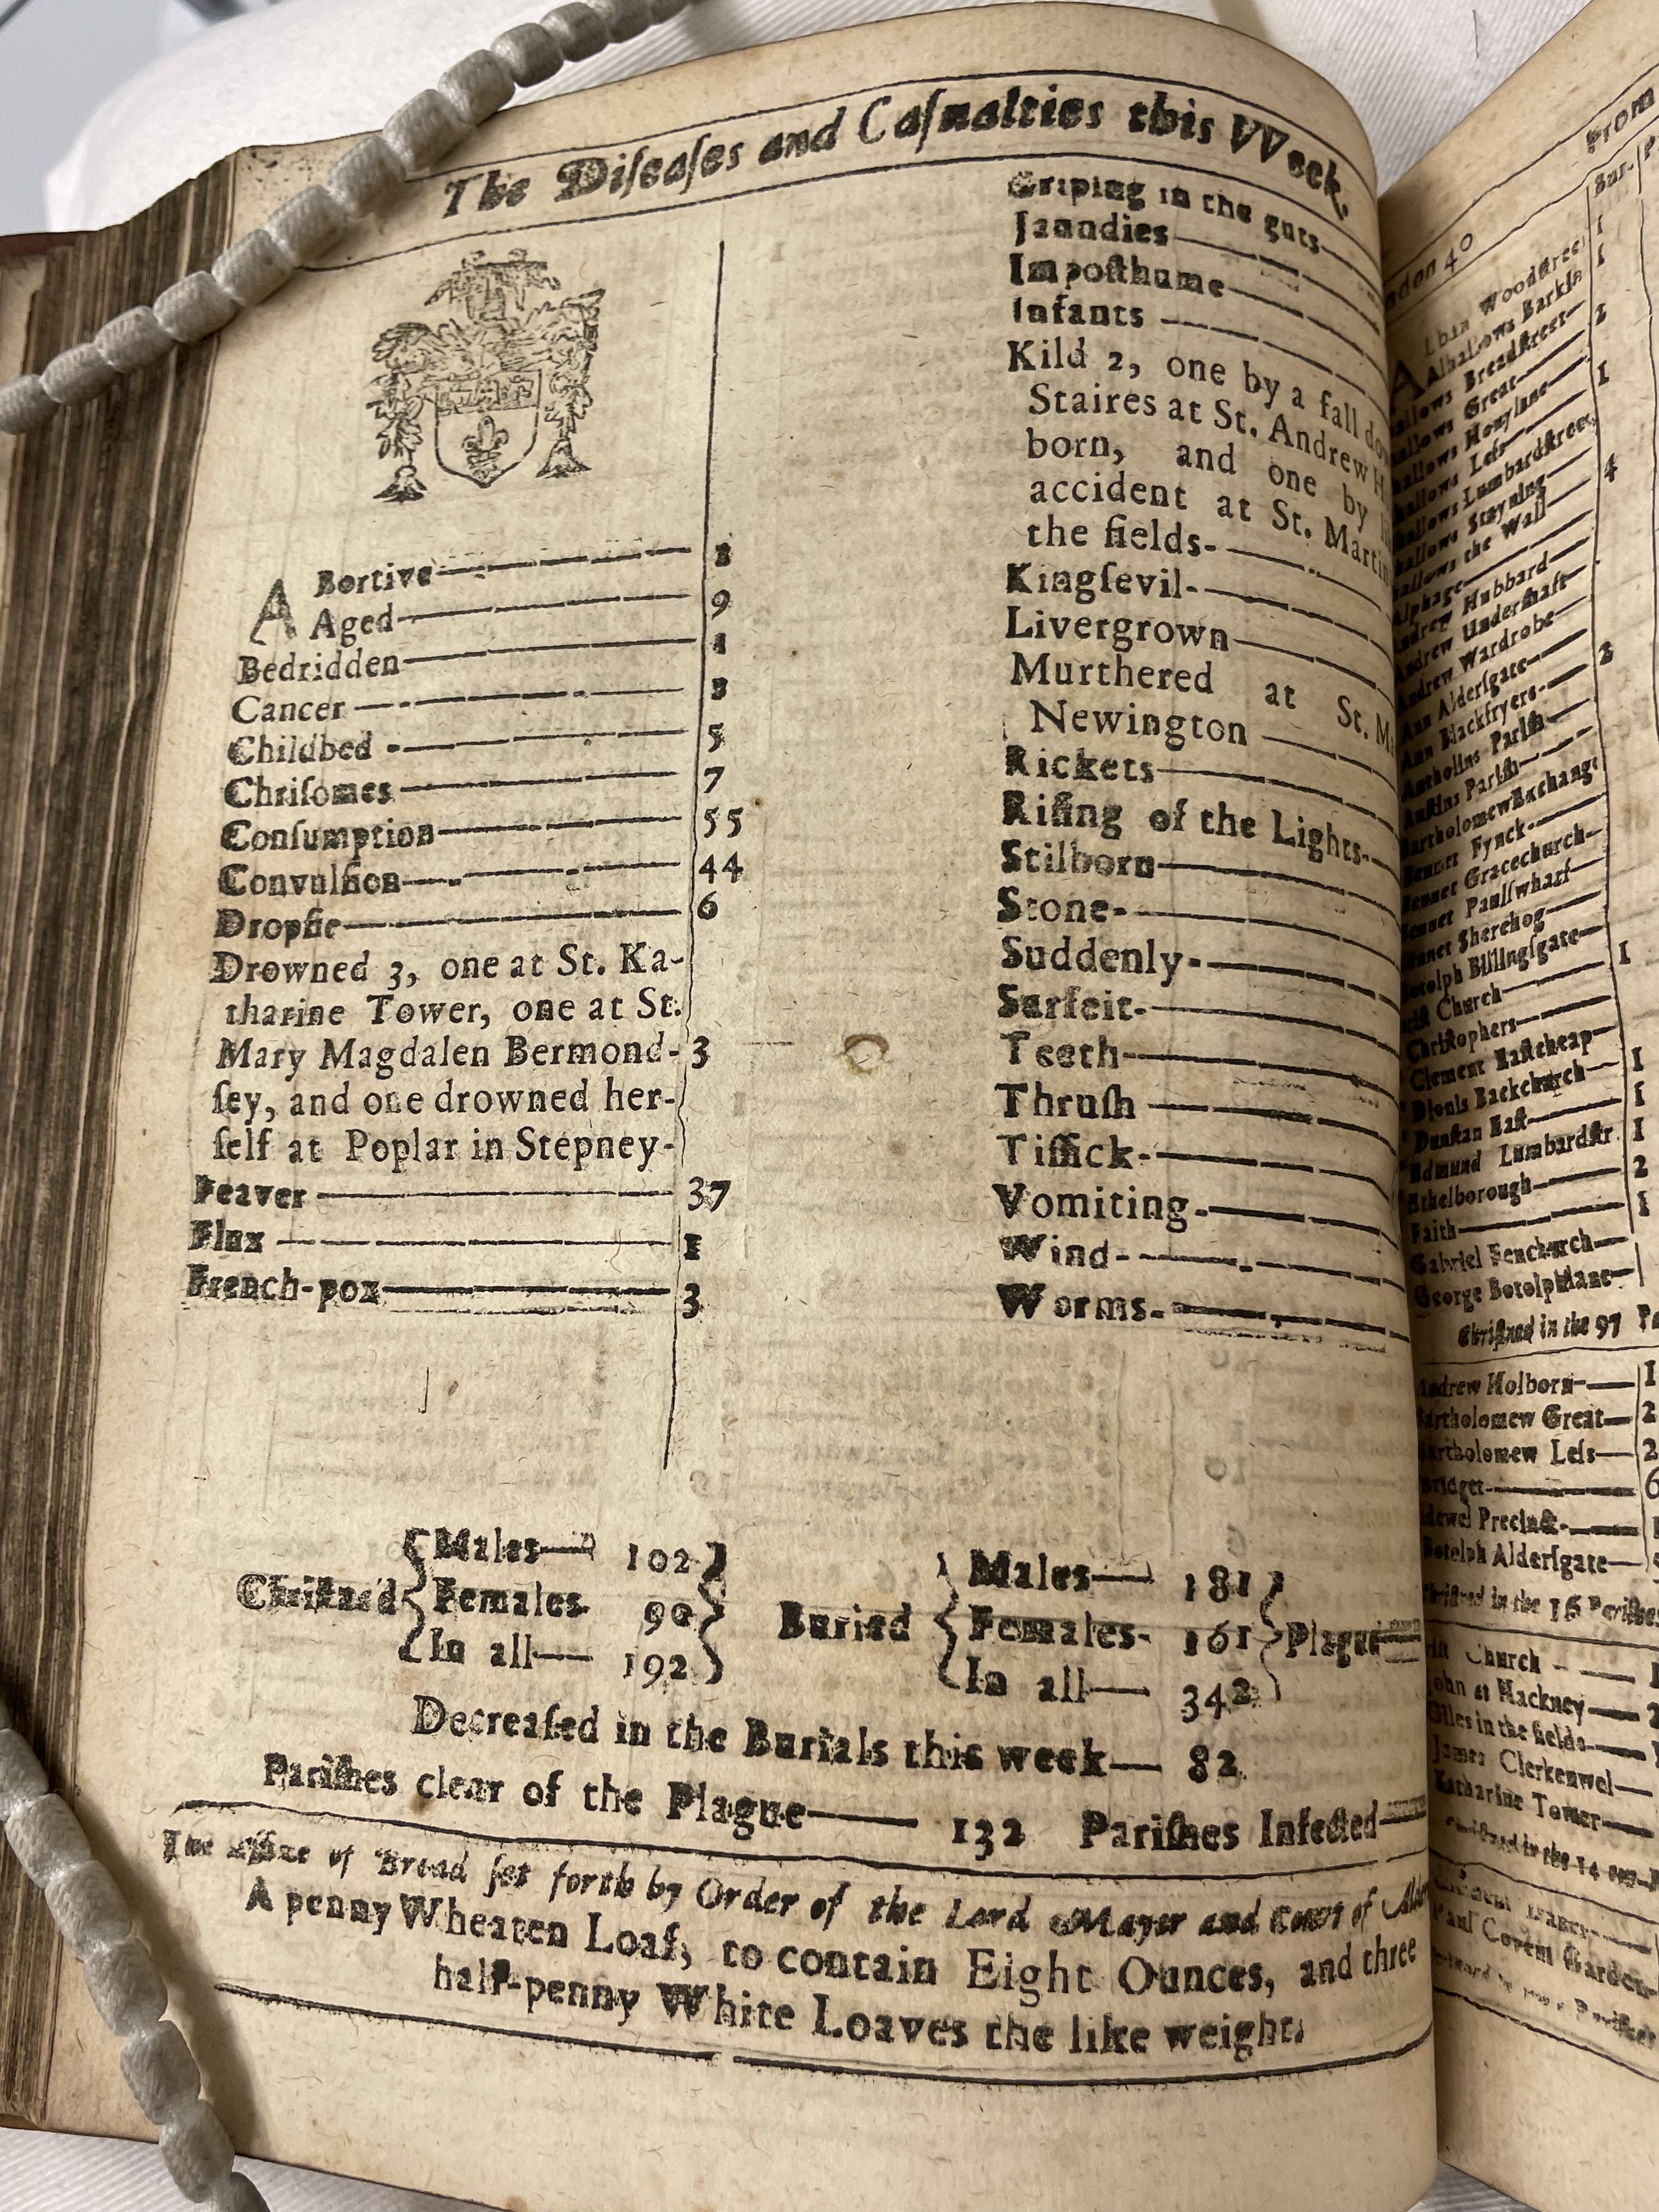 The Diſeaſes and Caſualties this VVeek.
ABortive 1
Aged 9
Bedridden 1
Cancer 3
Childbed 5
Chriſomes 7
Conſumption 55
Convulſion 44
Dropſie 6
Drowned 3, one at St. Ka-
tharine Tower, one at St.
Mary Magdalen Bermond- 3
ſey, and one drowned her-
ſelf at Poplar in Stepney-
Feaver 37
Flux 1
French-pox 3
Griping in the guts
Jaundies
Impoſthume
Infants
Kild 2, one by a fall
Staires at St. Andrew
born, and one by
accident at St. Martin
the fields-
Kingſevil-
Livergrown
Murthered at St.
Newington
Rickets
Riſing of the Lights-
Stilborn
Stone-
Suddenly-
Surfeit-
Teeth-
Thruſh
Tiſſick-
Vomiting-
Wind-
Worms-
Chriſtned
Males 102
Females 90
In all 192
Buried
Males 181
Females- 161
In all 342
Plague
Decreaſed in the Burials this week 82
Pariſhes clear of the Plague 132 Pariſhes Infected
The Aſſize of Bread ſet forth by Order of the Lord Mayor and Court of
A penny Wheaten Loaf, to contain Eight Ounces, and three
half-penny White Loaves the like weight.
From
40
Bur-
ALban Woodſtreet 1
Alhallows Barkin 1
Breadſtreet 2
Great
Honylane 1
Leſs
Lumbardſtreet
Stayning
the Wall 4
Alphage
Hubbard
Andrew Underſhaft
Andrew Wardrobe
Ann Alderſgate
Ann Blackfryers 3
Antholins Pariſh
Auſtins Pariſh
Bartholomew Exchange
Bennet Fynck
Bennet Gracechurch
Bennet Paulſwharf
Bennet Sherehog
Botolph Billingſgate
Church 1
Chriſtophers
Clement Eaſtcheap
Dionis Backchurch 1
Dunſtan Eaſt 1
Edmund Lumbardſtr. 1
Ethelborough 2
Faith 1
Gabriel Fenchurch
George Botolphlane
Chriſtned in the 97
Andrew Holborn
Bartholomew Great
Bartholomew Leſs
Bridget
Precinct
Botolph Alderſgate
Chriſtned in the 16 Pariſhes
Church
John at Hackney
Giles in the fields
James Clerkenwel
Katharine Tower
in the 14
Paul Covent Garden